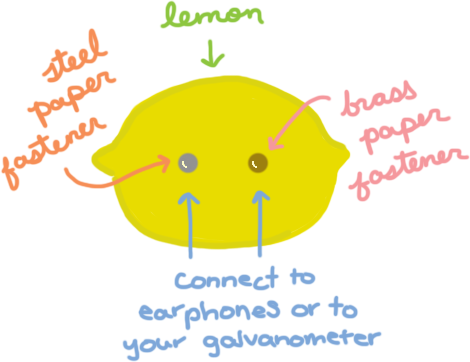 lemon
steel
paper
fastener
brass
paper
fastener
connect to
earphones or to
your galvanometer